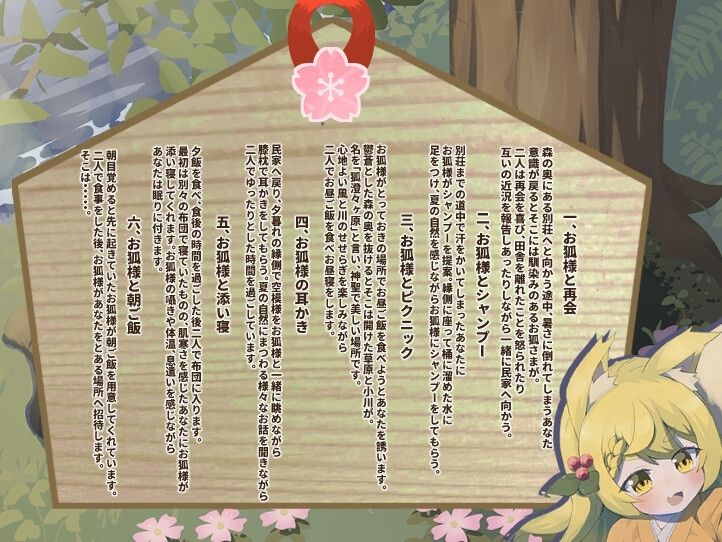 一、お狐様と再会
森の奥にある別荘へと向かう途中、暑さに倒れてしまうあなた
意識が戻るとそこには馴染みのあるお狐さまが。
二人は再会を喜び、田舎を離れたことを怒られたり
互いの近況を報告しあったりしながら一緒に民家へ向かう。
二、お狐様とシャンプー
別荘までの道中で汗をかいてしまったあなたに
お狐様がシャンプーを提案、縁側に座って桶に溜めた水に
足をつけ、夏の自然を感じながらお狐様にシャンプーをしてもらう。
三、お狐様とピクニック
お狐様がとっておきの場所でお昼ご飯を食べようとあなたを誘います。
鬱蒼とした森の奥を抜けるとそこは開けた草原と小川が。
名を「狐澄々ヶ原」と言い、神聖で美しい場所です。
心地よい風と川のせせらぎを楽しみながら
二人でお昼ご飯を食べお昼寝をします。
四、お狐様の耳かき
民家へ戻り、夕暮れの縁側で空模様をお狐様と一緒に眺めながら
膝枕で耳かきをしてもらう、夏の自然にまつわる様々なお話を聞きながら
二人でゆったりとした時間を過ごしています。
五、お狐様と添い寝
夕飯を食べ、食後の時間を過ごした後二人で布団に入ります。
最初は別々の布団で寝ていたものの、肌寒さを感じたあなたにお狐様が
添い寝してくれます。お狐様の囁きや体温、息遣いを感じながら
あなたは眠りに付きます。
六、お狐様と朝ご飯
朝目覚めると先に起きていたお狐様が朝ご飯を用意してくれています。
二人で食事をした後、お狐様があなたをとある場所へ招待します。
そこは……。